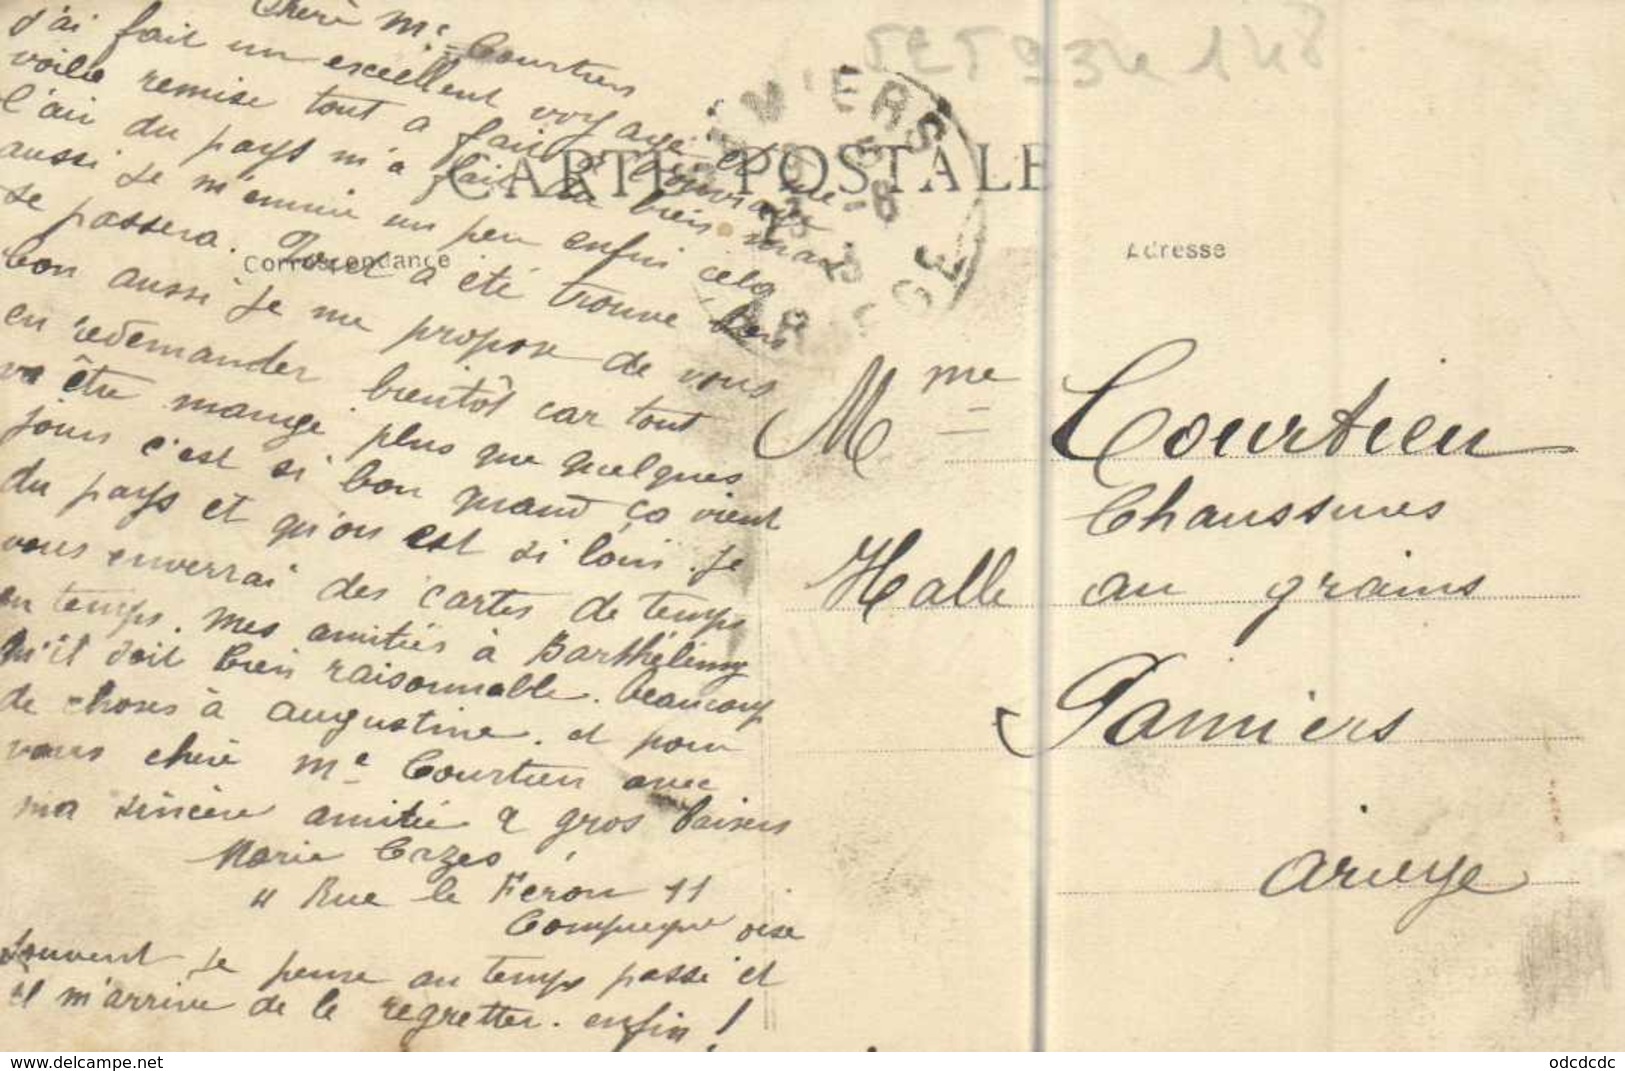 Chère Me Courtieu
J'ai fait un excellent voyage et me
voila remise tout a fait
l'air du pays m'a fait du bien mais
aussi je m'ennuie un peu enfin cela
se passera. a été trouvé bien
bon aussi je me propose de vous
en redemander bientôt car tout
va être mangé plus que quelques
jours c'est si bon quand ça vient
du pays et qu'on est si loin. Je
vous enverrai des cartes de temps
en temps. mes amitiés à Barthélemy
qu'il soit bien raisonnable. Beaucoup
de choses à augustine. et pour
vous chère Me Courtieu avec
ma sincère amitié & gros baisers
Marie Cazes
11 Rue le Feron 11
Compiegne oise
Souvent je pense au temps passé et
il m'arrive de le regretter. enfin !
CARTE POSTALE
Correspondance
Adresse
PAMIERS
ARIEGE
Mme Courtieu
Chaussures
Halle au grains
Pamiers
Ariege
https://www.delcampe.net
odcdcdc